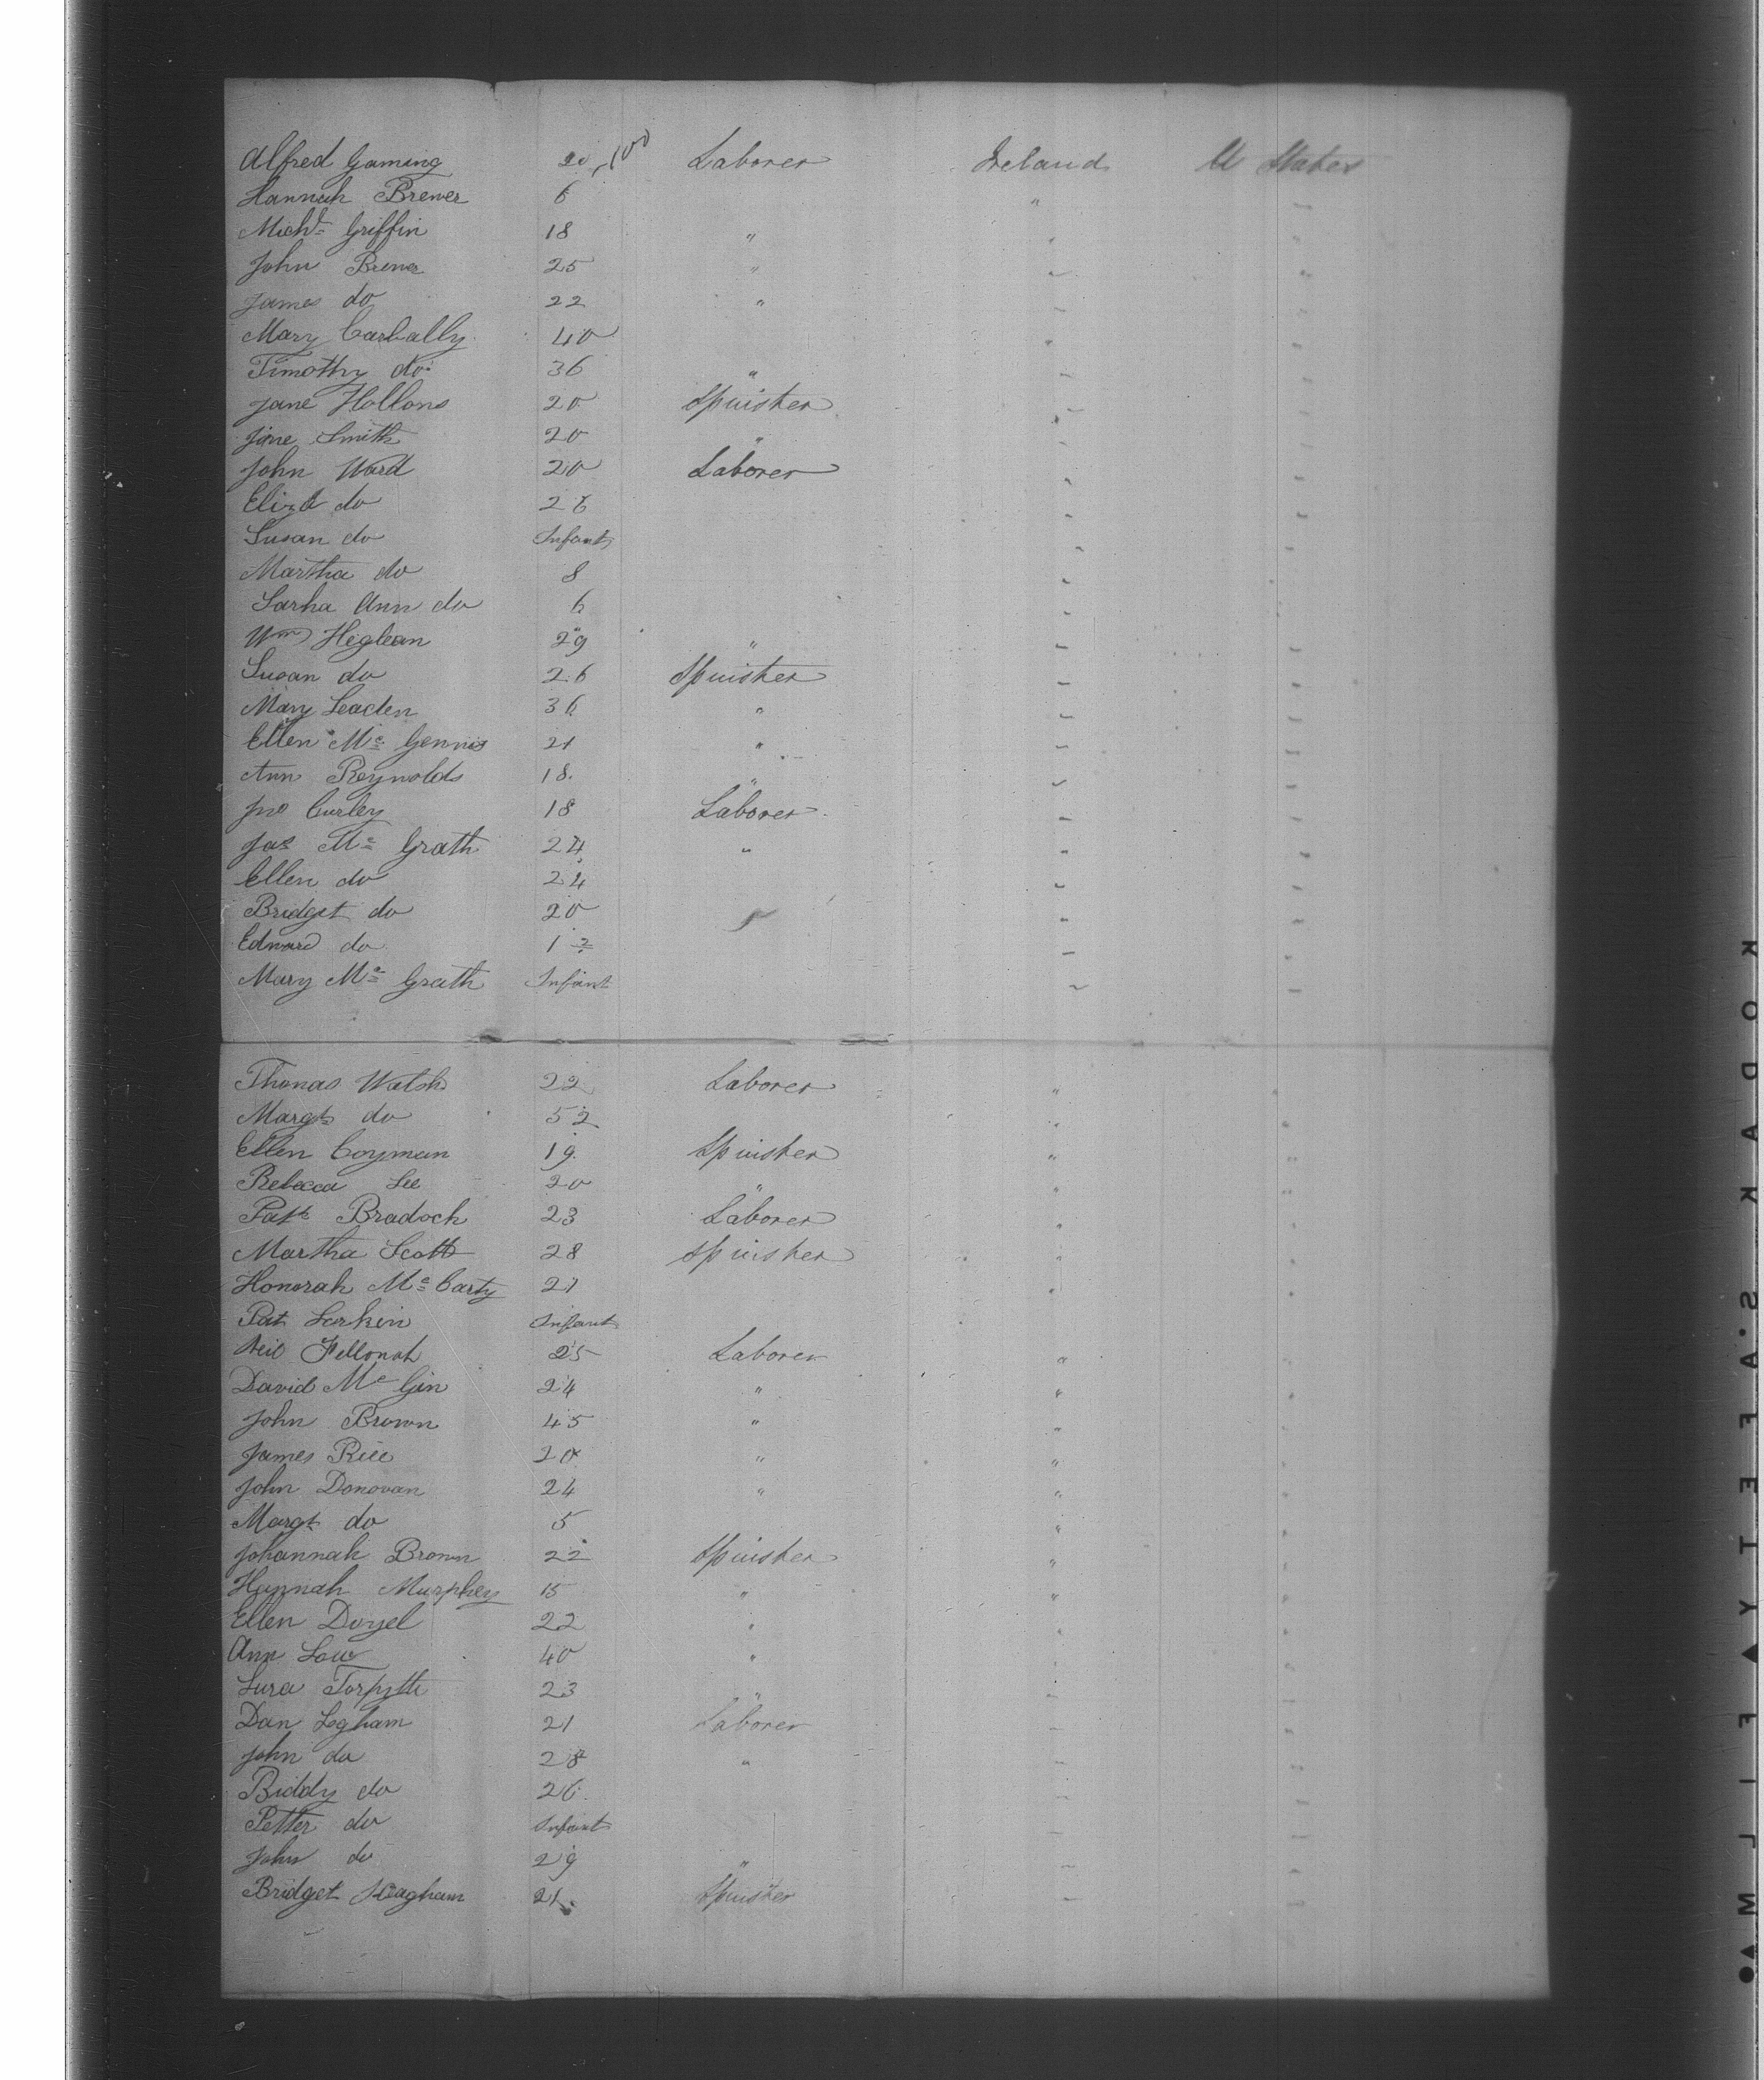 Alfred Gaming 20 100 Laborer Ireland U States
Hannah Brewer 6 " "
Michl Griffin 18 " " "
John Brewer 25 " " "
James do 22 " " "
Mary Carbally 40 " "
Timothy do 36 " " "
Jane Hollons 20 Spinster " "
Jane Smith 20 " " "
John Ward 20 Laborer " "
Eliza do 26 " "
Susan do Infant " "
Martha do 8 " "
Sarha Ann do 6 " "
Wm Heglean 29 " " "
Susan do 26 Spinster " "
Mary Leaden 36 " " "
Ellen Mc Gennis 21 " " "
Ann Reynolds 18 " " "
Jno Curley 18 Laborer " "
Jas Mc Grath 24 " " "
Ellen do 24 " "
Bridget do 20 " "
Edward do 12 " "
Mary Mc Grath Infant " "
Thomas Walsh 22 Laborer " "
Margt do 52 " "
Ellen Coyman 19 Spinster " "
Rebecca Lee 20 " " "
Patk Bradock 23 Laborer " "
Martha Scott 28 Spinster " "
Honorah Mc Carty 21 " "
Pat Larkin Infant
Neil 25 Laborer " "
David Mc Gin 24 " " "
John Brown 45 " " "
James Rice 20 " " "
John Donovan 24 " " "
Margt do 5 " "
Johannah Brown 22 Spinster " "
Hannah Murphey 15 " " "
Ellen Doyel 22 " " "
Ann Low 40 " " "
Lura Torpyth 23 " " "
Dan Legham 21 Laborer " "
John do 28 " " "
Biddy do 26 " "
Petter do Infant " "
John do 29 " " "
Bridget 21 Spinster " "
KODAK S.AFETY FILM